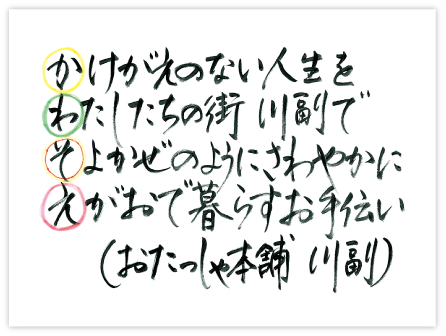 かけがえのない人生を
わたしたちの街 川副で
そよかぜのようにさわやかに
えがおで暮らすお手伝い
(おたっしゃ本舗 川副)